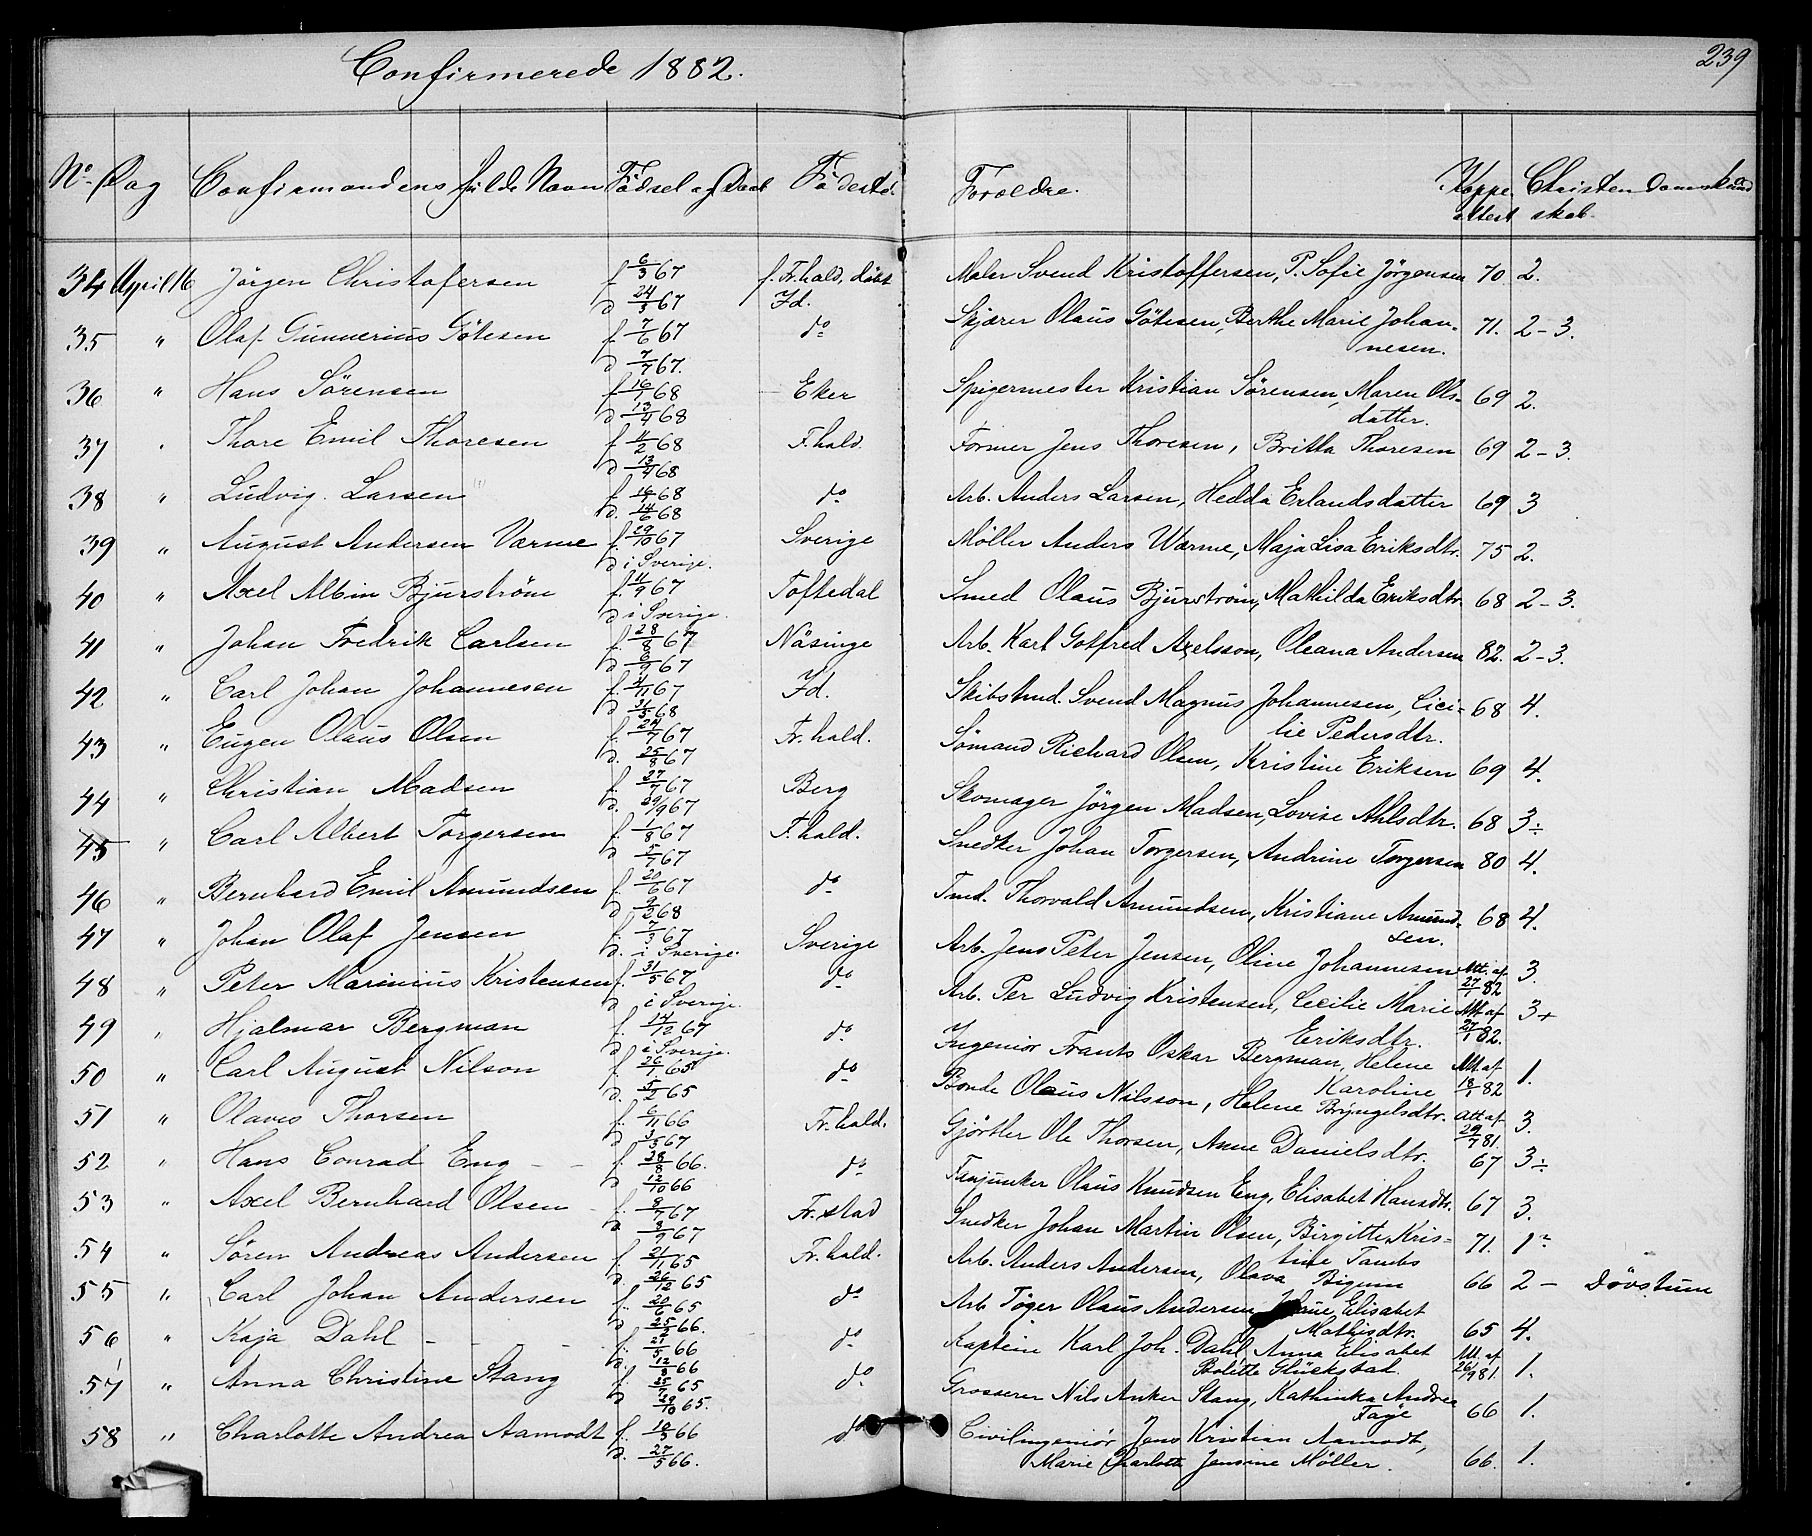 Confirmerede 1882.
239
No. Dag Confirmandens fulde Navn Födsel og Daab Födested. Forældre. Koppe attest Christendomskundskab.
34 April 16 Jörgen Christofersen f. 6/3 67 f. Fr.hald, döbt Maler Svend Kristoffersen, P. Sofie Jörgensen 70 2.
d 24/3 67 Id.
35 " Olaf Gunnerius Götesen f. 7/6 67 do Skjærer Olaus Götesen, Berthe Marie Johan- 71. 2-3.
d 7/7 67. nesen.
36 " Hans Sörensen f. 16/1 68 Eker Spigermester Kristian Sörensen, Maren Ols- 69 2.
d 13/4 68 datter.
37 " Thore Emil Thoresen f. 11/2 68 F.hald. Former Jens Thoresen, Britta Thoresen 69 2-3.
d 13/4 68
38 " Ludvig Larsen f. 16/1 68 do Arb. Anders Larsen, Hedda Erlandsdatter 69 3
d. 14/6 68
39 " August Andersen Værme f. 29/10 67 Sverige Möller Anders Wærme, Maja Lisa Eriksdtr. 75 2.
d i Sverige.
40 " Axel Albin Bjurström f. 11/9 67 Toftedal Smed Olaus Bjurström, Mathilda Eriksdtr. 68 2-3.
d i Sverige.
41 " Johan Fredrik Carlsen f. 28/8 67 Näsinge Arb. Karl Gotfred Axelsson, Oleana Andersen 82. 2-3.
d 6/9 67
42 " Carl Johan Johannesen f. 4/11 67 Id. Skibstmd. Svend Magnus Johannesen, Cici- 68 4.
d. 31/5 68 lie Pedersdtr.
43 " Eugen Olaus Olsen f. 24/7 67 Fr.hald. Sömand Richard Olsen, Kristine Eriksen 69 4.
d. 25/8 67
44 " Christian Madsen f. 27/7 67 Berg Skomager Jörgen Madsen, Lovise Ahlsdtr. 68 3÷
d. 29/9 67
45 " Carl Albert Torgersen f. 1/8 67 F.hald. Snedker Johan Torgersen, Andrine Torgersen 80 4.
d 5/7 67
46 " Bernhard Emil Amundsen f. 20/6 67 do Tmd. Thorvald Amundsen, Kristiane Amund- 68 4.
d 9/2 68 sen.
47 " Johan Olaf Jensen f. 7/3 67 Sverige Arb. Jens Peter Jensen, Oline Johannesen Att. af 27/1 82 3.
d. i Sverige.
48 " Peter Marinius Kristensen f. 31/5 67 do Arb. Per Ludvig Kristensen, Cecilie Marie Att. af 27/1 82. 3+
d i Sverige. Eriksdtr.
49 " Hjalmar Bergman f. 14/12 67 do Ingeniör Frants Oskar Bergman, Helene Att. af 18/1 82 1.
d i Sverige. Karoline
50 " Carl August Nilson f. 26/1 65 do Bonde Olaus Nilsson, Helene Bryngelsdtr. Att af 29/7 81. 3.
d. 5/2 65
51 " Olaves Thorsen f. 6/11 66 Fr.hald. Gjörtler Ole Thorsen, Anne Danielsdtr. 67 3÷
d 3/3 67
52 " Hans Conrad Eng f. 28/8 66. do Fanjunker Olaus Knudsen Eng, Elisabet Hansdtr. 67 3.
d 12/10 66
53 " Axel Bernhard Olsen f. 9/7 67 Fr.stad Snedker Johan Martin Olsen, Birgitte Kris- 71. 1
d 8/9 67 tine Tambs
54 " Sören Andreas Andersen f. 21/11 65 Fr.hald. Arb. Anders Andersen, Olava Bigum 66 2 - Dövstum
d. 26/12 65
55 " Carl Johan Andersen f. 20/6 65 do Arb. Töger Olaus Andersen, Elisabet 65 4.
d 25/2 66. Mathisdtr.
56 " Kaja Dahl f. 21/5 66 do Kaptein Karl Joh. Dahl, Anna Elisabet Att. af 26/9 81. 1.
d. 12/8 66 Bolette Glückstad.
57 " Anna Christine Stang f. 25/7 65 do Grosserer Nils Anker Stang, Kathinka Andrea 66 1.
d 29/10 65. Faye
58 " Charlotte Andrea Aamodt f. 10/3 66 do Civilingeniör Jens Kristian Aamodt,
d. 27/5 66. Marie Charlotte Jensine Möller. 66. 1.